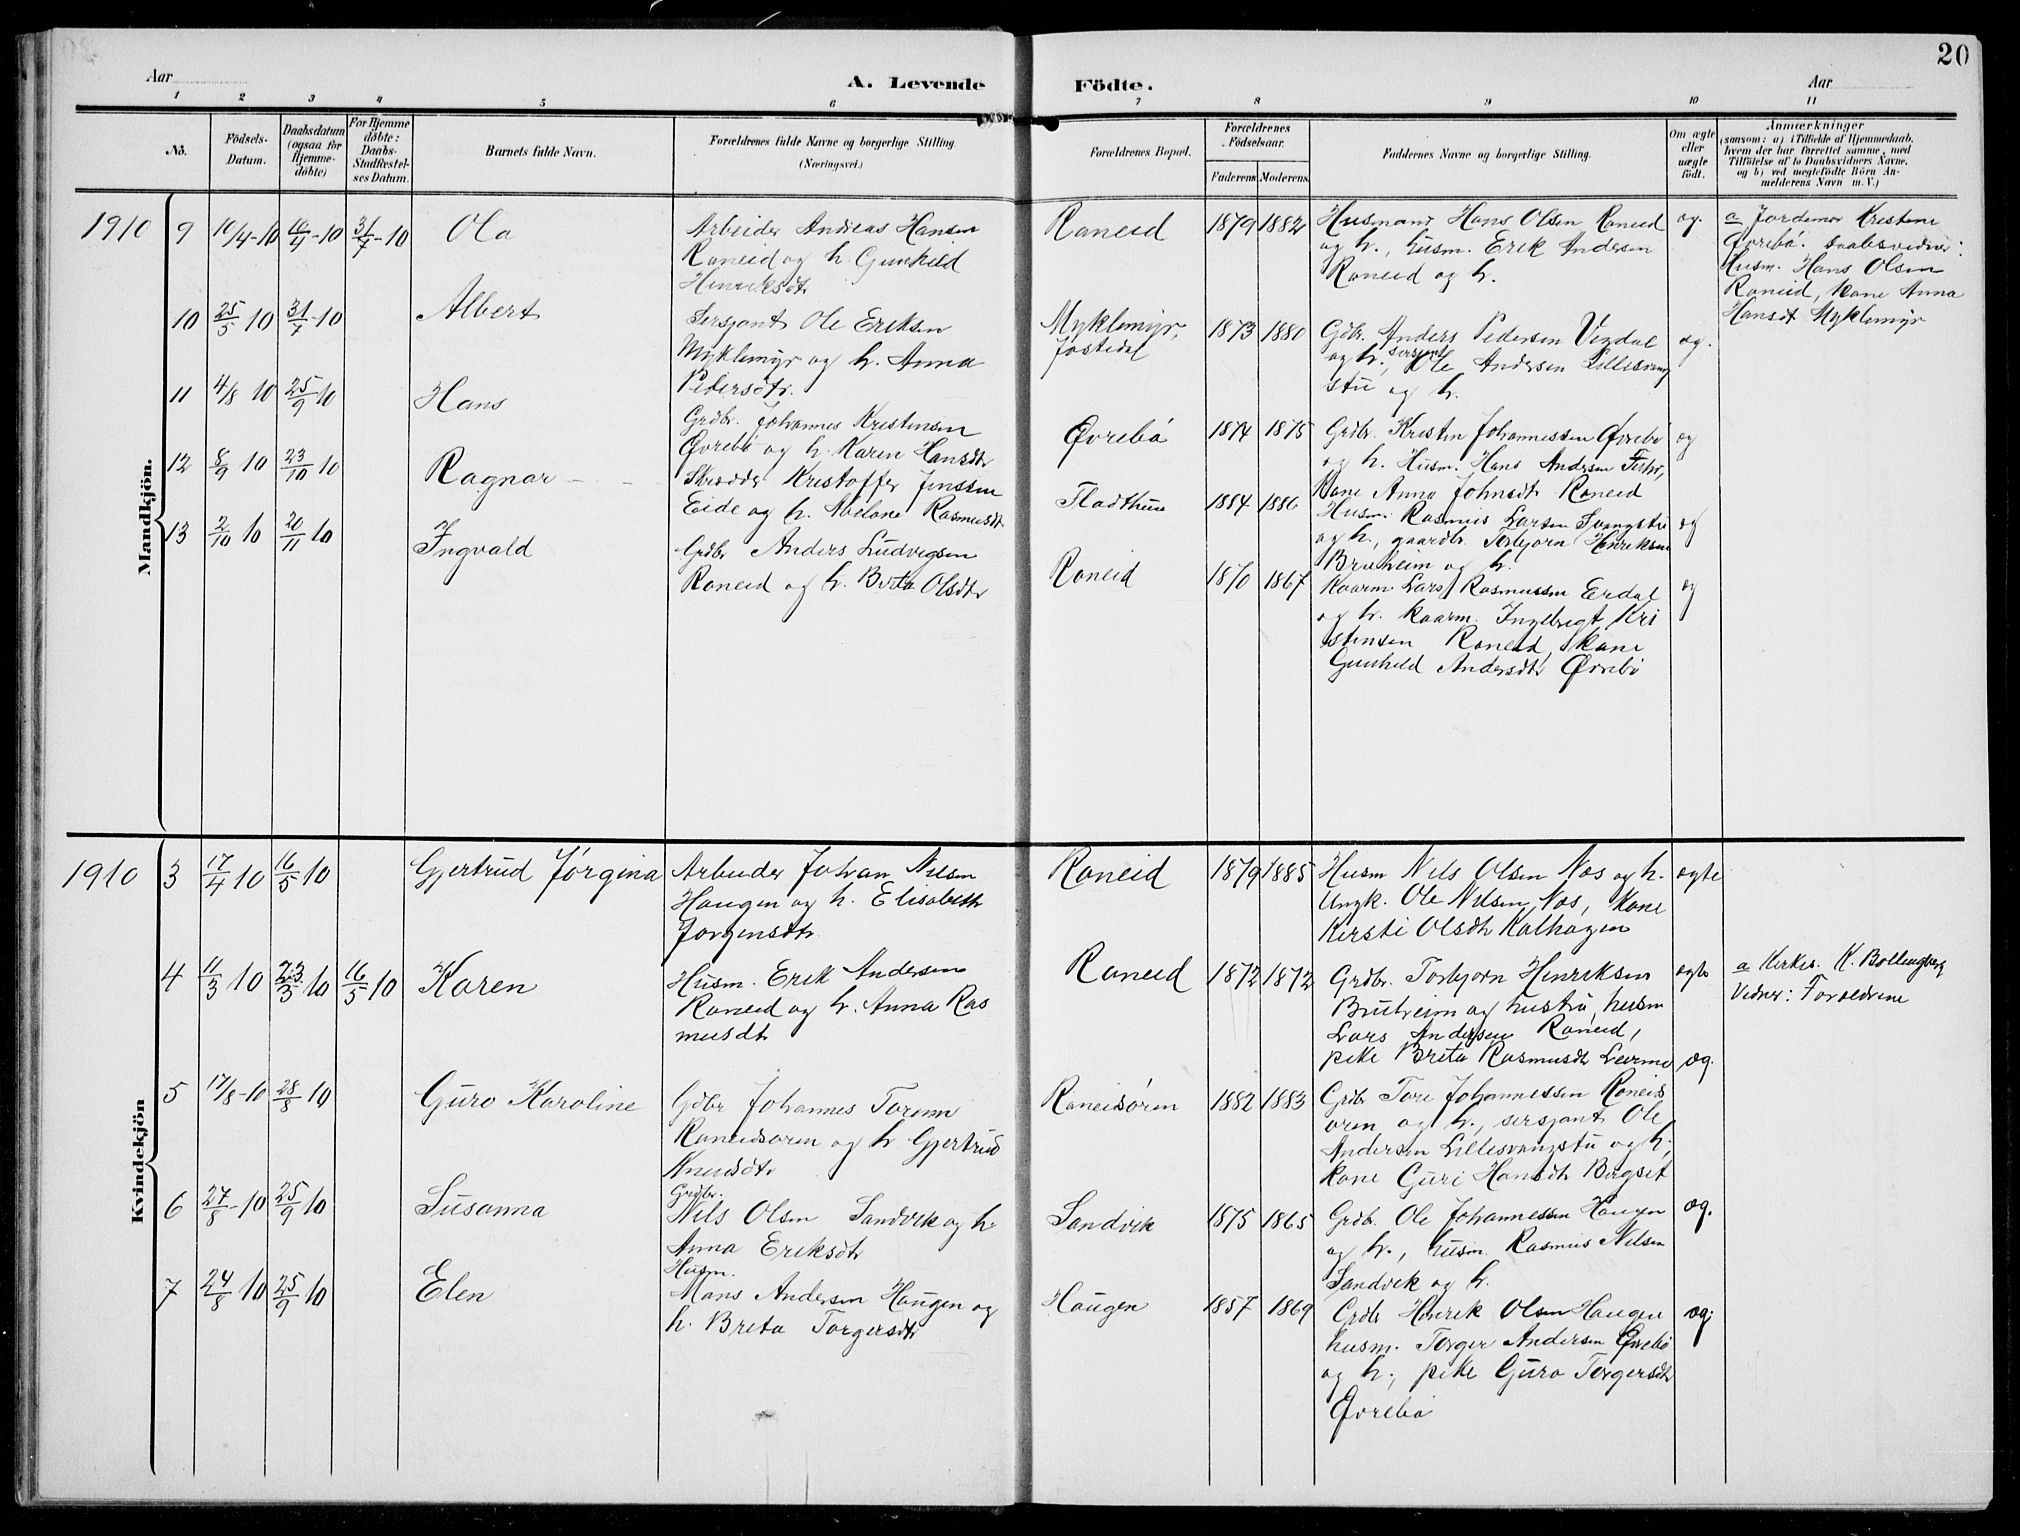 20
Aar
A. Levende
Födte.
Aar
1 2 3 4 5 6 7 8 9 10 11
Nö.
Födsels-
Datum.
Daabsdatum
(ogsaa for
Hjemme-
döbte)
For Hjemme
döbte:
Daabs-
Stadfæstel-
ses Datum.
Barnets fulde Navn.
Forældrenes fulde Navne og borgerlige Stilling
(Næringsvei.)
Forældrenes Bopæl.
Forældrenes
Födselsaar.
Faderens Moderens.
Faddernes Navne og borgerlige Stilling.
Om ægte
eller
uægte
født.
Anmærkninger
(saasom: a) i Tilfælde af Hjemmedaab,
hvem der har forrettet samme, med
Tilföielse af to Daabsvidners Navne,
og b) ved uegtefödte Börn An-
melderens Navn m. V.)
Mandkjön.
1910 9 10/4-10 10/4-10 31/7-10 Ola
Arbeider Andreas Hansen
Raneid og h. Gunhild
Henriksdtr
Raneid 1879 1882
Husmand Hans Olsen Raneid
og h., husm. Erik Andersen
Raneid og h.
æg.
a Jordemor Kristine
Øvrebø. Daabsvidner:
Husm. Hans Olsen
Raneid, kone Anna
Hansdt Myklemyr
10 25/5 10 31/7-10 Albert
Sersjant Ole Eriksen
Myklemyr og h. Anna
Pedersdtr.
Myklemyr,
Jostedal 1873 1880
Grdbr. Anders Pedersen Vigdal
og h., sersjant Ole Andersen Lillesvang
stu og h.
æg.
11 4/8 10 25/9 10 Hans
Grdbr. Johannes Kristensen
Øvrebø og h. Karen Hansdtr
Øvrebø 1874 1875
Grdbr. Kristen Johannessen Øvrebø
og h. Husm. Hans Andersen
Kone Anna Johnsdtr Raneid
æg
12 8/9 10 23/10 10 Ragnar
Skrædder Kristoffer Jenssen
Eide og h. Abelone Rasmusdt.
Fladthus 1884 1886
Husm. Rasmus Larsen Svangstu
og h., gaardbr. Torbjørn Henriksen
Bruheim og h.
æg
13 2/10 10 20/11 10 Ingvald
Grdbr Anders Ludvigsen
Raneid og h. Brita Olsdtr
Raneid 1870 1867
Kaarm Lars Rasmussen Erdal
og h. kaarm. Ingebrigt Kri
stensen Raneid, kone
Gunhild Andersdtr Øvrebø
æg
Kvindekjön
1910 3 17/4 10 16/5 10 Gjertrud Jørgina
Arbeider Johan Nilsen
Haugen og h. Elisabeth
Jørgensdtr.
Raneid 1879 1885
Husm Nils Olsen Nøs og h.
Ungk. Ole Nilsen Nøs, Kone
Kersti Olsdtr Kalhagen
ægte
4 11/3 10 23/3 10 16/5 10 Karen
Husm. Erik Andersen
Raneid og h. Anna Ras
musdtr
Raneid 1872 1872
Grdbr. Torbjørn Henriksen
Bruheim og hustru, husm
Lars Andersen Raneid,
pike Brita Rasmusdtr Leirmo
ægte
a Kirkes. K. Bollingberg
Vidner: Forældrene
5 17/8-10 28/8 10 Guro Karoline
Gdbr Johannes Toresen
Raneidsøren og h Gjertrud
Knudsdtr
Raneidsøren 1882 1883
Grdbr Tore Johannessen Raneids
øren og h., sersjant Ole
Andersen Lillesvangstu og h.
Kone Guri Hansdtr Bergset
æg.
6 27/8-10 25/9 10 Susanna
Grdbr.
Nils Olsen Sandvik og h
Anna Eriksdtr
Sandvik 1875 1865
Grdbr. Ole Johannessen Haugen
og h., husm. Rasmus Nilsen
Sandvik og h.
æg.
7 24/8 10 25/9 10 Elen
Husm.
Mons Andersen Haugen og
h. Brita Torgersdtr
Haugen 1857 1869
Grdbr Henrik Olsen Haugen
husm. Torger Andersen Øvrebø
og h., pike Guro Torgersdtr
Øvrebø
æg.